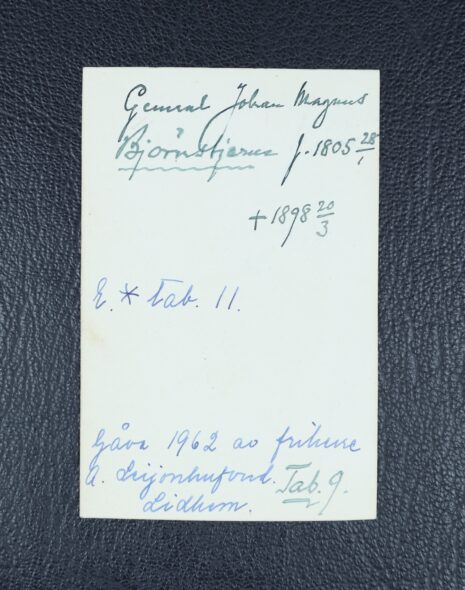 General Johan Magnus
Björnstjerna f. 1805 28/1
+ 1898 20/3
E. * tab. 11.
Gåva 1962 av friherre
A. Leijonhufvud.
Tab. 9.
Lidhem.